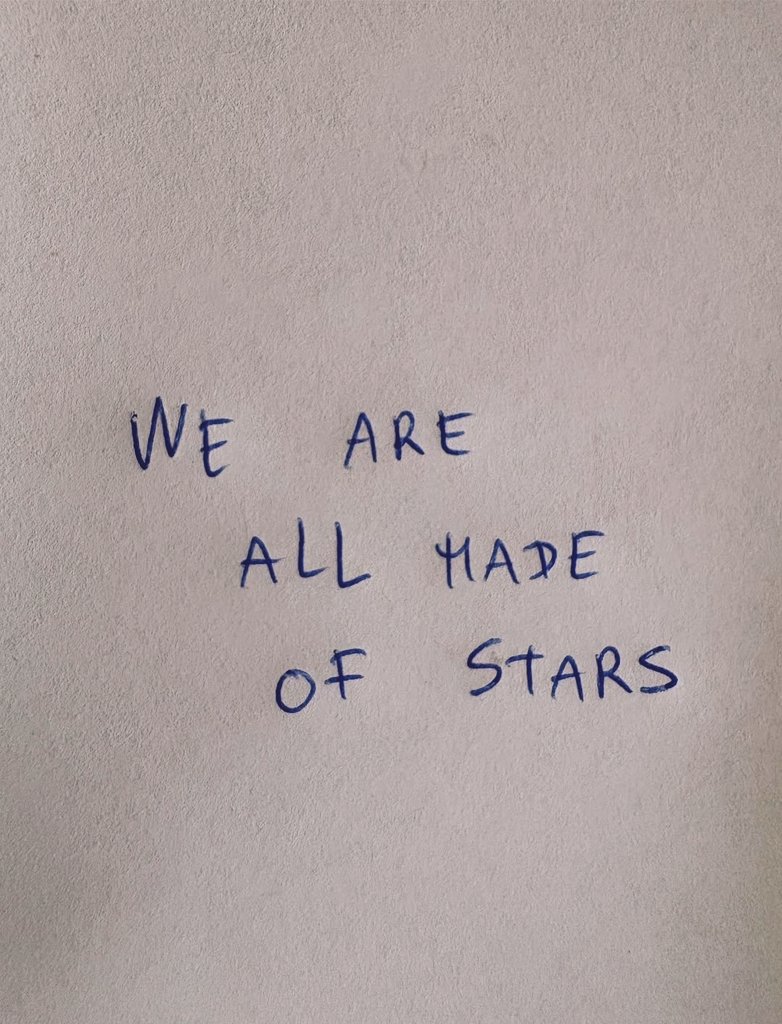 WE ARE
ALL MADE
OF STARS